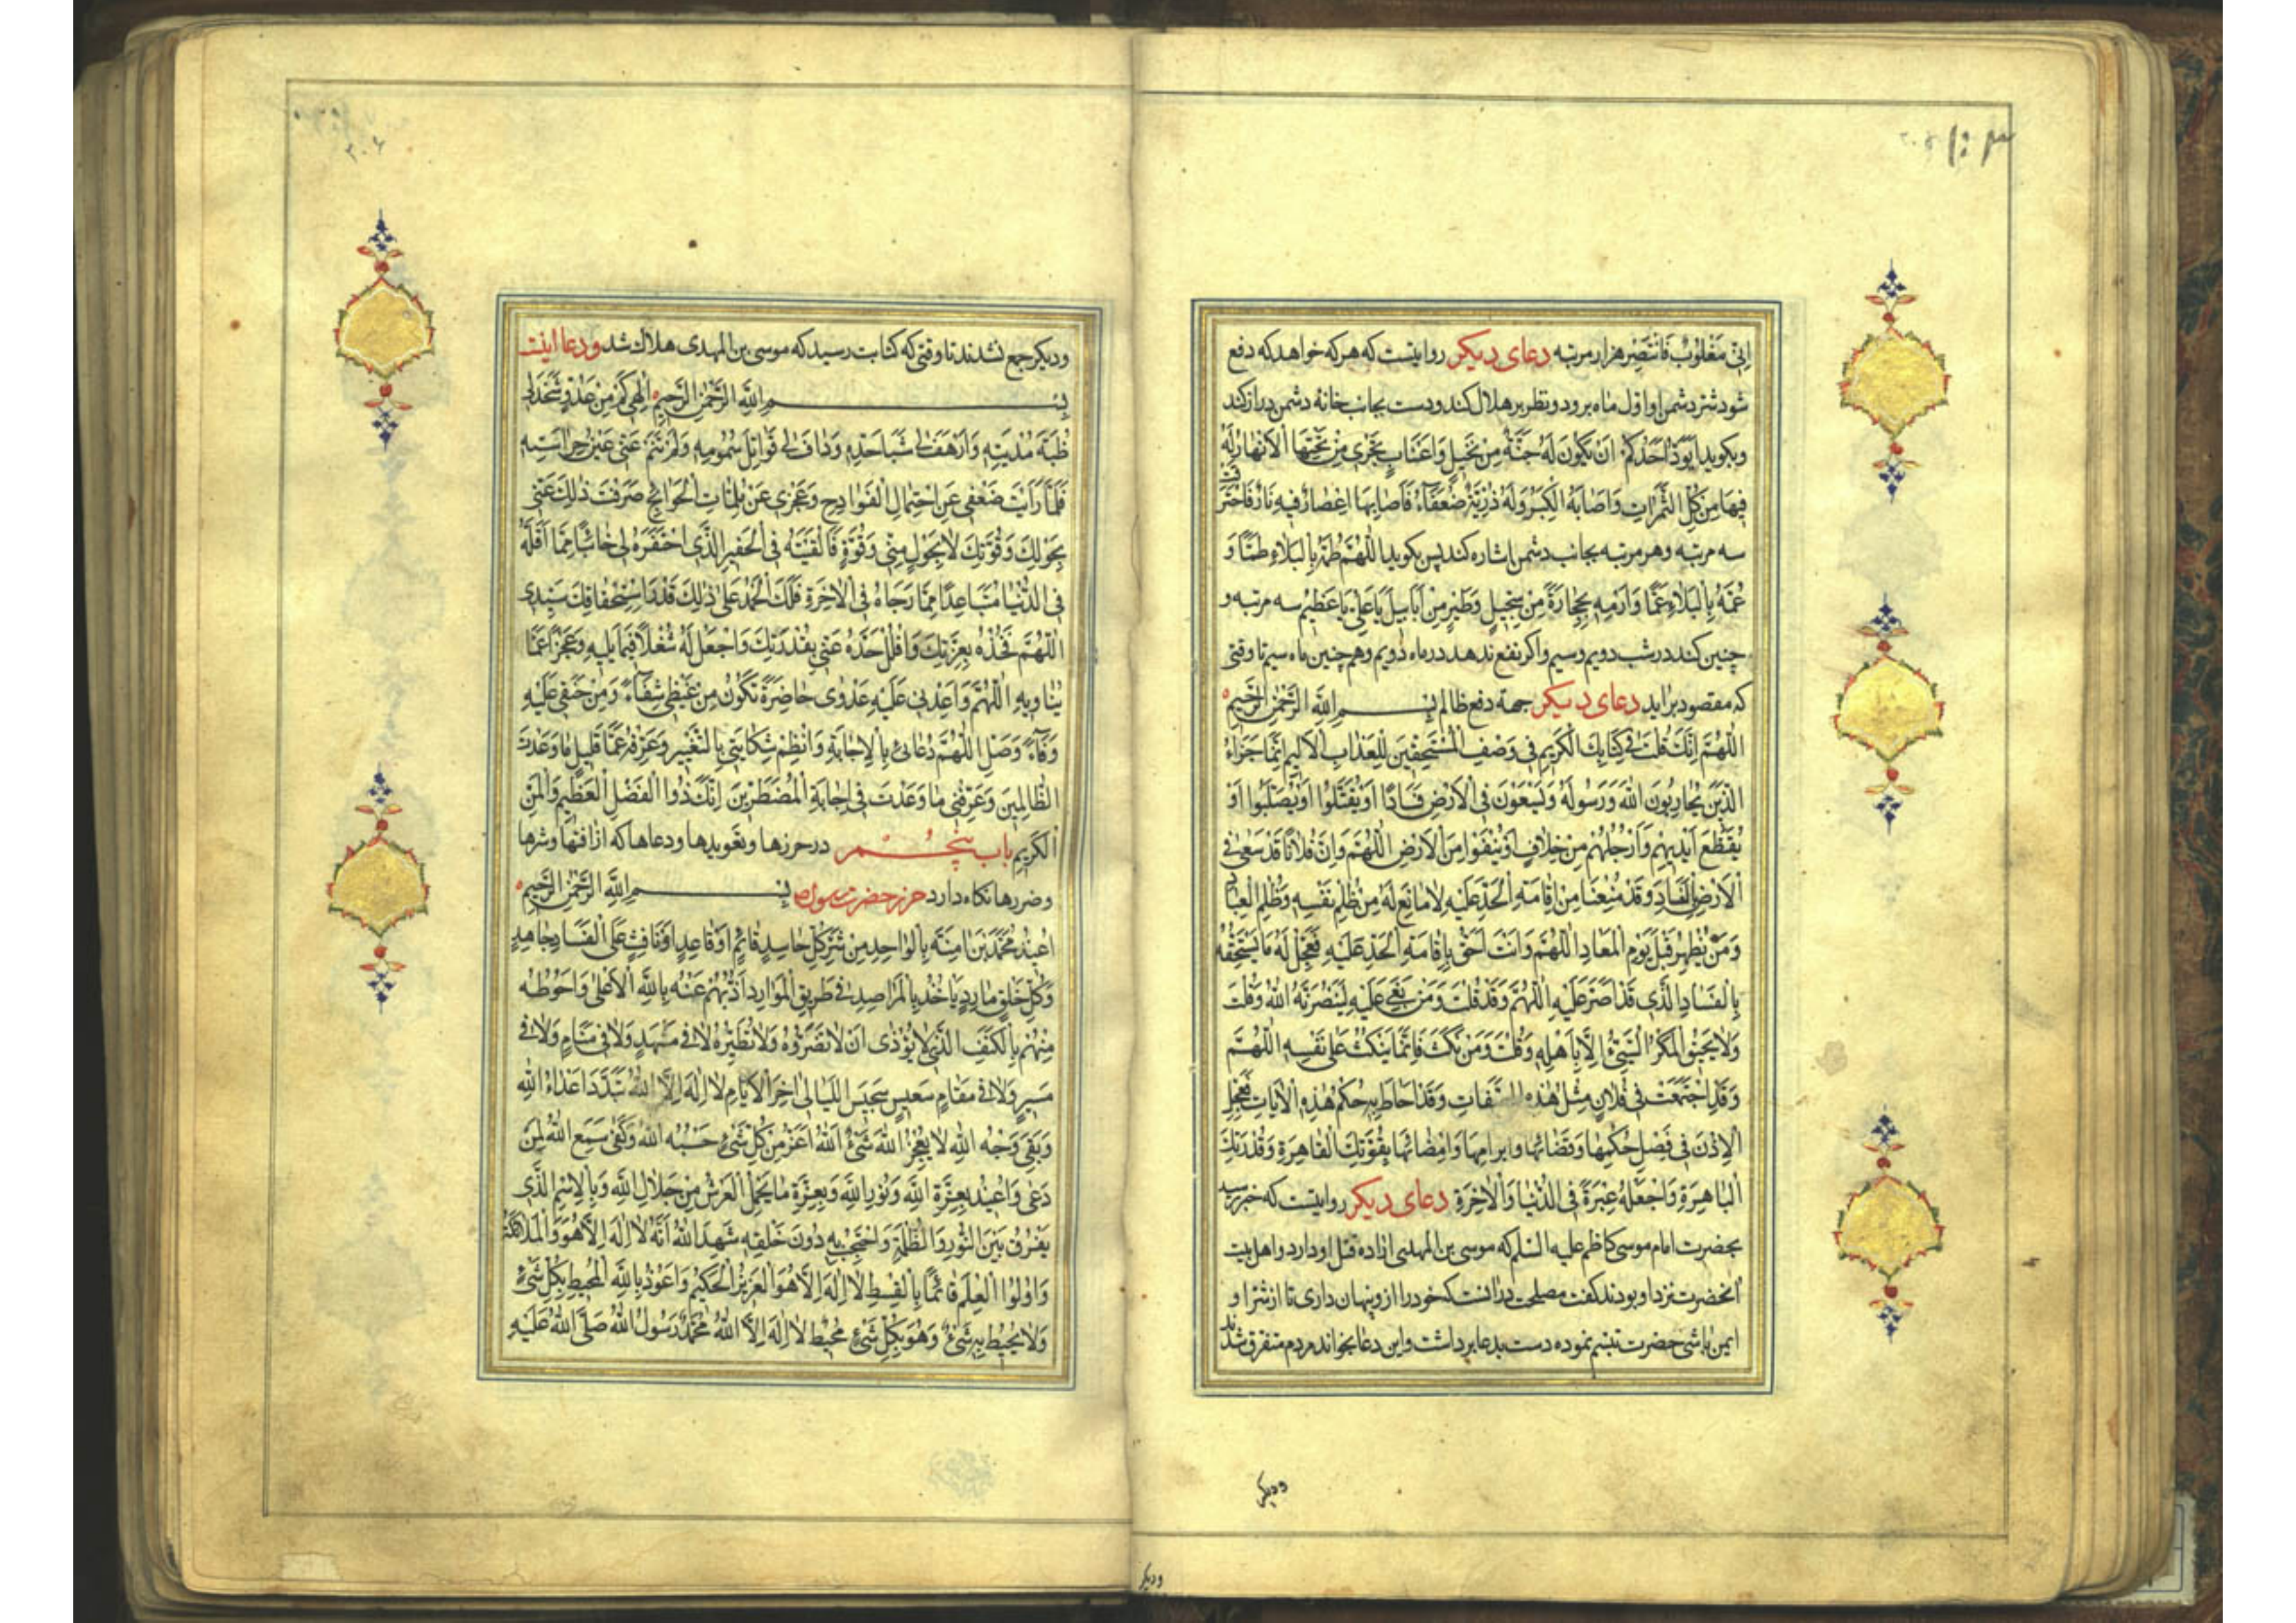 ۲۰۵
اِنّی مَغْلُوبٌ فَانْتَصِرْ هزار مرتبه دعای دیکر روایتست که هر که خواهد که دفع
شود شرّ دشمن او اوّل ماه برود و نظر بر هلال کند و دست بجانب خانهٔ دشمن دراز کند
و بکوید اَیَوَدُّ اَحَدُکُمْ اَنْ تَکُونَ لَهُ جَنَّةٌ مِنْ نَخیلٍ وَاَعْنابٍ تَجْری مِنْ تَحْتِهَا الْاَنْهارُ لَهُ
فیها مِنْ کُلِّ الثَّمَراتِ وَاَصابَهُ الْکِبَرُ وَلَهُ ذُرِّیَّةٌ ضُعَفآءُ فَاَصابَها اِعْصارٌ فیهِ نارٌ فَاحْتَرَقَتْ
سه مرتبه و هر مرتبه بجانب دشمن اشاره کند پس بکوید اَللّهُمَّ طُمَّهُ بِالْبَلاءِ طَمًّا وَ
عُمَّهُ بِالْبَلاءِ عَمًّا وَارْمِهِ بِحِجارَةٍ مِنْ سِجّیلٍ وَطَیْرٍ مِنْ اَبابیلَ یاعَلِیُّ یاعَظیمُ سه مرتبه و
چنین کند در شب دویم و سیم و اکر نفع ندهد در ماه دویم و هم چنین ماه سیم تا وقتی
که مقصود براید دعای دیکر جهة دفع ظالم بِسْمِ اللّهِ الرَّحْمنِ الرَّحیمِ
اَللّهُمَّ اِنَّکَ قُلْتَ فی کِتابِکَ الْکَریمِ فی وَصْفِ الْمُسْتَحِقّینَ لِلْعَذابِ الْاَلیمِ اِنَّما جَزاءُ
الَّذینَ یُحارِبُونَ اللّهَ وَرَسُولَهُ وَیَسْعَوْنَ فِی الْاَرْضِ فَسادًا اَنْ یُقَتَّلُوا اَوْیُصَلَّبُوا اَوْ
تُقَطَّعَ اَیْدیهِمْ وَاَرْجُلُهُمْ مِنْ خِلافٍ اَوْیُنْفَوْا مِنَ الْاَرْضِ اَللّهُمَّ وَاِنَّ فُلانًا قَدْ سَعی فی
الْاَرْضِ الْفَسادِ وَقَدْ مُنِعْنا مِنْ اِقامَةِ الْحَدِّ عَلَیْهِ لامانِعَ لَهُ مِنْ ظُلْمِ نَفْسِهِ وَظُلْمِ الْعِبادِ
وَمَنْ یَظْهَرُ قَبْلَ یَوْمِ الْمَعادِ اَللّهُمَّ وَاَنْتَ اَحَقُّ بِاِقامَةِ الْحَدِّ عَلَیْهِ فَعَجِّلْ لَهُ مایَسْتَحِقُّهُ
بِالْفَسادِ الَّذی قَدْ اَصَرَّ عَلَیْهِ اَللّهُمَّ وَقَدْ قُلْتَ وَمَنْ بُغِیَ عَلَیْهِ لَیَنْصُرَنَّهُ اللّهُ وَقُلْتَ
وَلایَحیقُ الْمَکْرُ السَّیِّئُ اِلّا بِاَهْلِهِ وَقُلْتَ وَمَنْ نَکَثَ فَاِنَّما یَنْکُثُ عَلی نَفْسِهِ اَللّهُمَّ
وَقَدِ اجْتَمَعَتْ فی فُلانٍ مِثْلُ هذِهِ الصِّفاتِ وَقَدْ اَحاطَ بِهِ حُکْمُ هذِهِ الْایاتِ فَعَجِّلِ
الْاِذْنَ فی فَصْلِ حُکْمِها وَقَضائِها وَاِبْرامِها وَاِمْضائِها بِقُوَّتِکَ الْقاهِرَةِ وَقُدْرَتِکَ
الْباهِرَةِ وَاجْعَلْهُ عِبْرَةً فِی الدُّنْیا وَالْاخِرَةِ دعای دیکر روایتست که خبر رسید
بحضرت امام موسی کاظم علیه السّلم که موسی بن المهدی ارادهٔ قتل او دارد و اهل بیت
انحضرت نزد او بودند کفت مصلحت در انست که خود را از و پنهان داری تا از شرّ او
ایمن باشی حضرت تبسّم نموده دست بدعا برداشت و این دعا بخواند مردم متفرق شدند
ودیکر
۲۰۶
ودیکر جمع نشدند تا وقتی که کتابت رسید که موسی بن المهدی هلاک شد و دعا اینست
بِسْمِ اللّهِ الرَّحْمنِ الرَّحیمِ اِلهی کَمْ مِنْ عَدُوٍّ شَحَذَ لی
ظُبَةَ مُدْیَتِهِ وَاَرْهَفَ لی شَباحَدِّهِ وَدافَ لی قَواتِلَ سُمُومِهِ وَلَمْ تَنَمْ عَنّی عَیْنُ حِراسَتِهِ
فَلَمّا رَاَیْتَ ضَعْفی عَنِ احْتِمالِ الْفَوادِحِ وَعَجْزی عَنْ مُلِمّاتِ الْحَوائِجِ صَرَفْتَ ذلِکَ عَنّی
بِحَوْلِکَ وَقُوَّتِکَ لابِحَوْلٍ مِنّی وَقُوَّةٍ فَاَلْقَیْتَهُ فِی الْحَفیرِ الَّذی احْتَفَرَهُ لی خائِبًا مِمّا اَمَّلَهُ
فِی الدُّنْیا مُتَباعِدًا مِمّا رَجاهُ فِی الْاخِرَةِ فَلَکَ الْحَمْدُ عَلی ذلِکَ قَدْرَ اسْتِحْقاقِکَ سَیِّدی
اَللّهُمَّ فَخُذْهُ بِعِزَّتِکَ وَافْلُلْ حَدَّهُ عَنّی بِقُدْرَتِکَ وَاجْعَلْ لَهُ شُغْلًا فیما یَلیهِ وَعَجْزًا عَمّا
یُناویهِ اَللّهُمَّ وَاَعِدْنی عَلَیْهِ عَدْوی حاضِرَةً تَکُونُ مِنْ غَیْظی شِفآءً وَمِنْ حَنَقی عَلَیْهِ
وَفآءً وَصَلِ اللّهُمَّ دُعائی بِالْاِجابَةِ وَانْظِمْ شِکایَتی بِالتَّغْییرِ وَعَرِّفْهُ عَمّا قَلیلٍ ماوَعَدْتَ
الظّالِمینَ وَعَرِّفْنی ماوَعَدْتَ فی اِجابَةِ الْمُضْطَرّینَ اِنَّکَ ذُوا الْفَضْلِ الْعَظیمِ وَالْمَنِّ
الْکَریمِ باب پنجم در حرزها و تعویدها و دعاها که از افتها و شرها
و ضررها نکاه دارد حرز حضرت رسول ص بِسْمِ اللّهِ الرَّحْمنِ الرَّحیمِ
اُعیذُ مُحَمَّدَ بْنَ امِنَةَ بِالْواحِدِ مِنْ شَرِّ کُلِّ حاسِدٍ قائِمٍ اَوْقاعِدٍ اَوْنافِثٍ عَلَی الْفَسادِ جاهِدٍ
وَکُلِّ خَلْقٍ مارِدٍ یَاْخُذُ بِالْمَراصِدِ فی طَریقِ الْمَوارِدِ اَذُبُّهُمْ عَنْهُ بِاللّهِ الْاَعْلی وَاَحُوطُهُ
مِنْهُمْ بِالْکَنَفِ الَّذی لایُؤْذی اَنْ لایَضُرُّوهُ وَلایُطَیِّرُهُ لافی مَشْهَدٍ وَلافی مَنامٍ وَلافی
مَسیرٍ وَلافی مَقامٍ سَجیسَ اللَّیالی اخِرَ الْاَیّامِ لااِلهَ اِلَّا اللّهُ تَبَدَّدَ اَعْداءُ اللّهِ
وَبَقِیَ وَجْهُ اللّهِ لایُعْجِزُ اللّهَ شَیْءٌ اَللّهُ اَعَزُّ مِنْ کُلِّ شَیْءٍ حَسْبُهُ اللّهُ وَکَفی سَمِعَ اللّهُ لِمَنْ
دَعی وَاُعیذُهُ بِعِزَّةِ اللّهِ وَنُورِ اللّهِ وَبِعِزَّةِ مایَحْمِلُ الْعَرْشُ مِنْ جَلالِ اللّهِ وَبِالْاِسْمِ الَّذی
یَفْرُقُ بَیْنَ النُّورِ وَالظُّلْمَةِ وَاحْتَجَبَ بِهِ دُونَ خَلْقِهِ شَهِدَ اللّهُ اَنَّهُ لااِلهَ اِلّا هُوَ وَالْمَلائِکَةُ
وَاُولُوا الْعِلْمِ قائِمًا بِالْقِسْطِ لااِلهَ اِلّا هُوَ الْعَزیزُ الْحَکیمُ وَاَعُوذُ بِاللّهِ الْمُحیطِ بِکُلِّ شَیْءٍ
وَلایُحیطُ بِهِ شَیْءٌ وَهُوَ بِکُلِّ شَیْءٍ مُحیطٌ لااِلهَ اِلَّا اللّهُ مُحَمَّدٌ رَسُولُ اللّهِ صَلَّی اللّهُ عَلَیْهِ
ودیکر